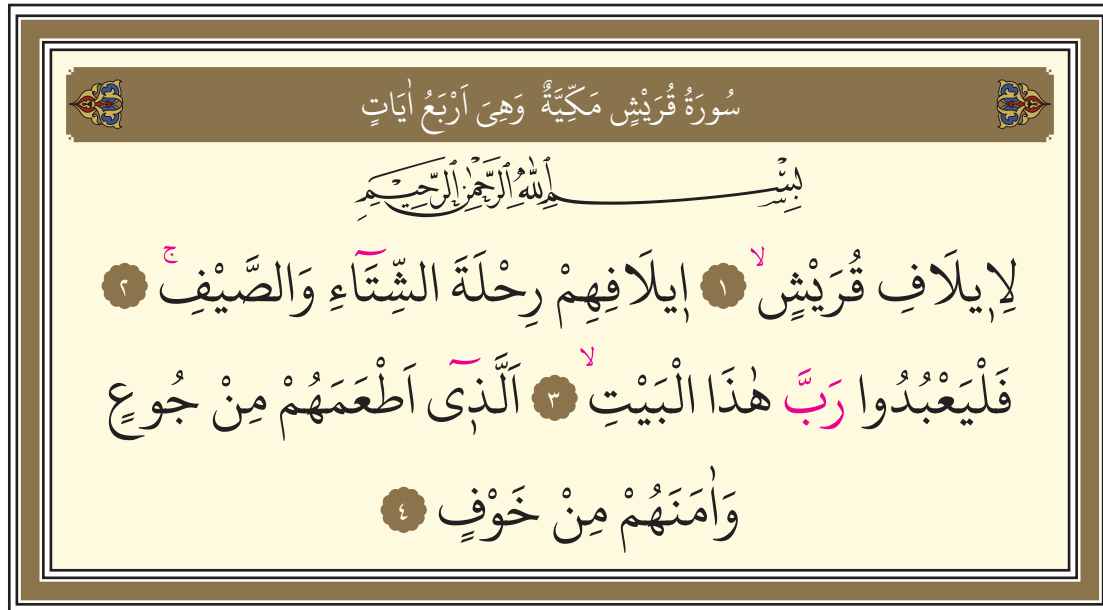 سُورَةُ قُرَيْشٍ مَكِّيَّةٌ وَهِىَ اَرْبَعُ اٰيَاتٍ
بِسْمِ اللّٰهِ الرَّحْمٰنِ الرَّحِيمِ
لِاٖيلَافِ قُرَيْشٍۙ ١ اٖيلَافِهِمْ رِحْلَةَ الشِّتَٓاءِ وَالصَّيْفِۚ ٢
فَلْيَعْبُدُوا رَبَّ هٰذَا الْبَيْتِۙ ٣ اَلَّذٖٓى اَطْعَمَهُمْ مِنْ جُوعٍ
وَاٰمَنَهُمْ مِنْ خَوْفٍ ٤